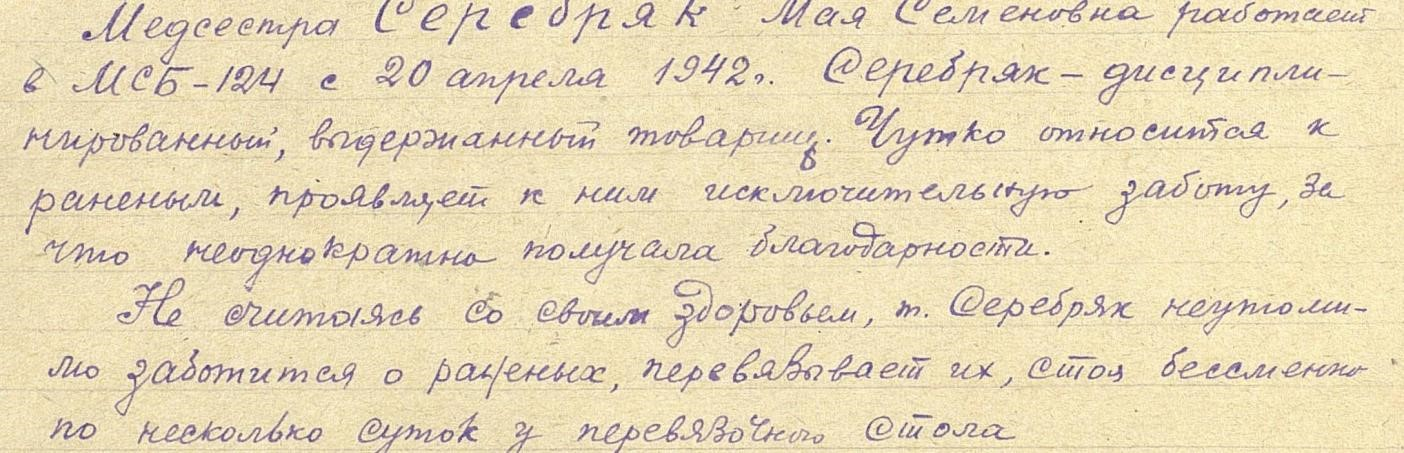 Медсестра Серебряк Мая Семеновна работает
в МСБ-124 с 20 апреля 1942г. Серебряк - дисципли-
нированный, выдержанный товарищ. Чутко относится к
раненым, проявляет к ним исключительную заботу, за
что неоднократно получала благодарности.
Не считаясь со своим здоровьем, т. Серебряк неутоми-
мо заботится о раненых, перевязывает их, стоя бессменно
по несколько суток у перевязочного стола